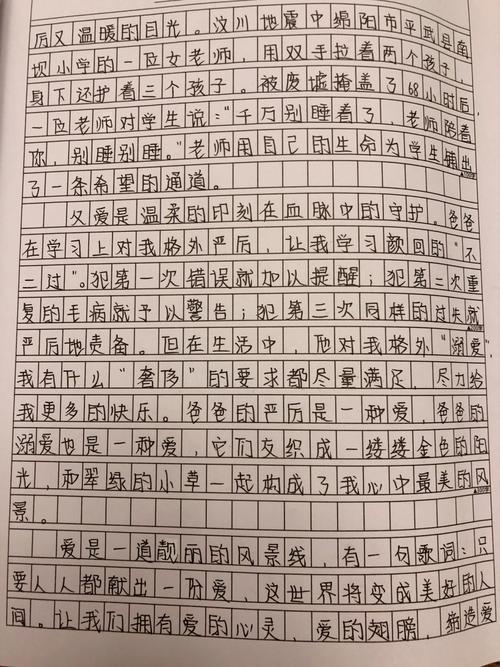 厉又温暖的目光。汶川地震中绵阳市平武县南
坝小学的一位女老师，用双手拉着两个孩子，
身下还护着三个孩子。被废墟掩盖了68小时后，
一位老师对学生说："千万别睡着了，老师陪着
你，别睡别睡。"老师用自己的生命为学生铺出
了一条希望的通道。
父爱是温柔的印刻在血脉中的守护。爸爸
在学习上对我格外严厉，让我学习颜回的"不
二过"。犯第一次错误就加以提醒；犯第二次重
复的毛病就予以警告；犯第三次同样的过失就
严厉地责备。但在生活中，他对我格外"溺爱"，
我有什么"奢侈"的要求都尽量满足，尽力给
我更多的快乐。爸爸的严厉是一种爱，爸爸的
溺爱也是一种爱，它们交织成一缕缕金色的阳
光，和翠绿的小草一起构成了我心中最美的风
景。
爱是一道靓丽的风景线，有一句歌词：只
要人人都献出一份爱，这世界将变成美好的人
间。让我们拥有爱的心灵，爱的翅膀，造爱